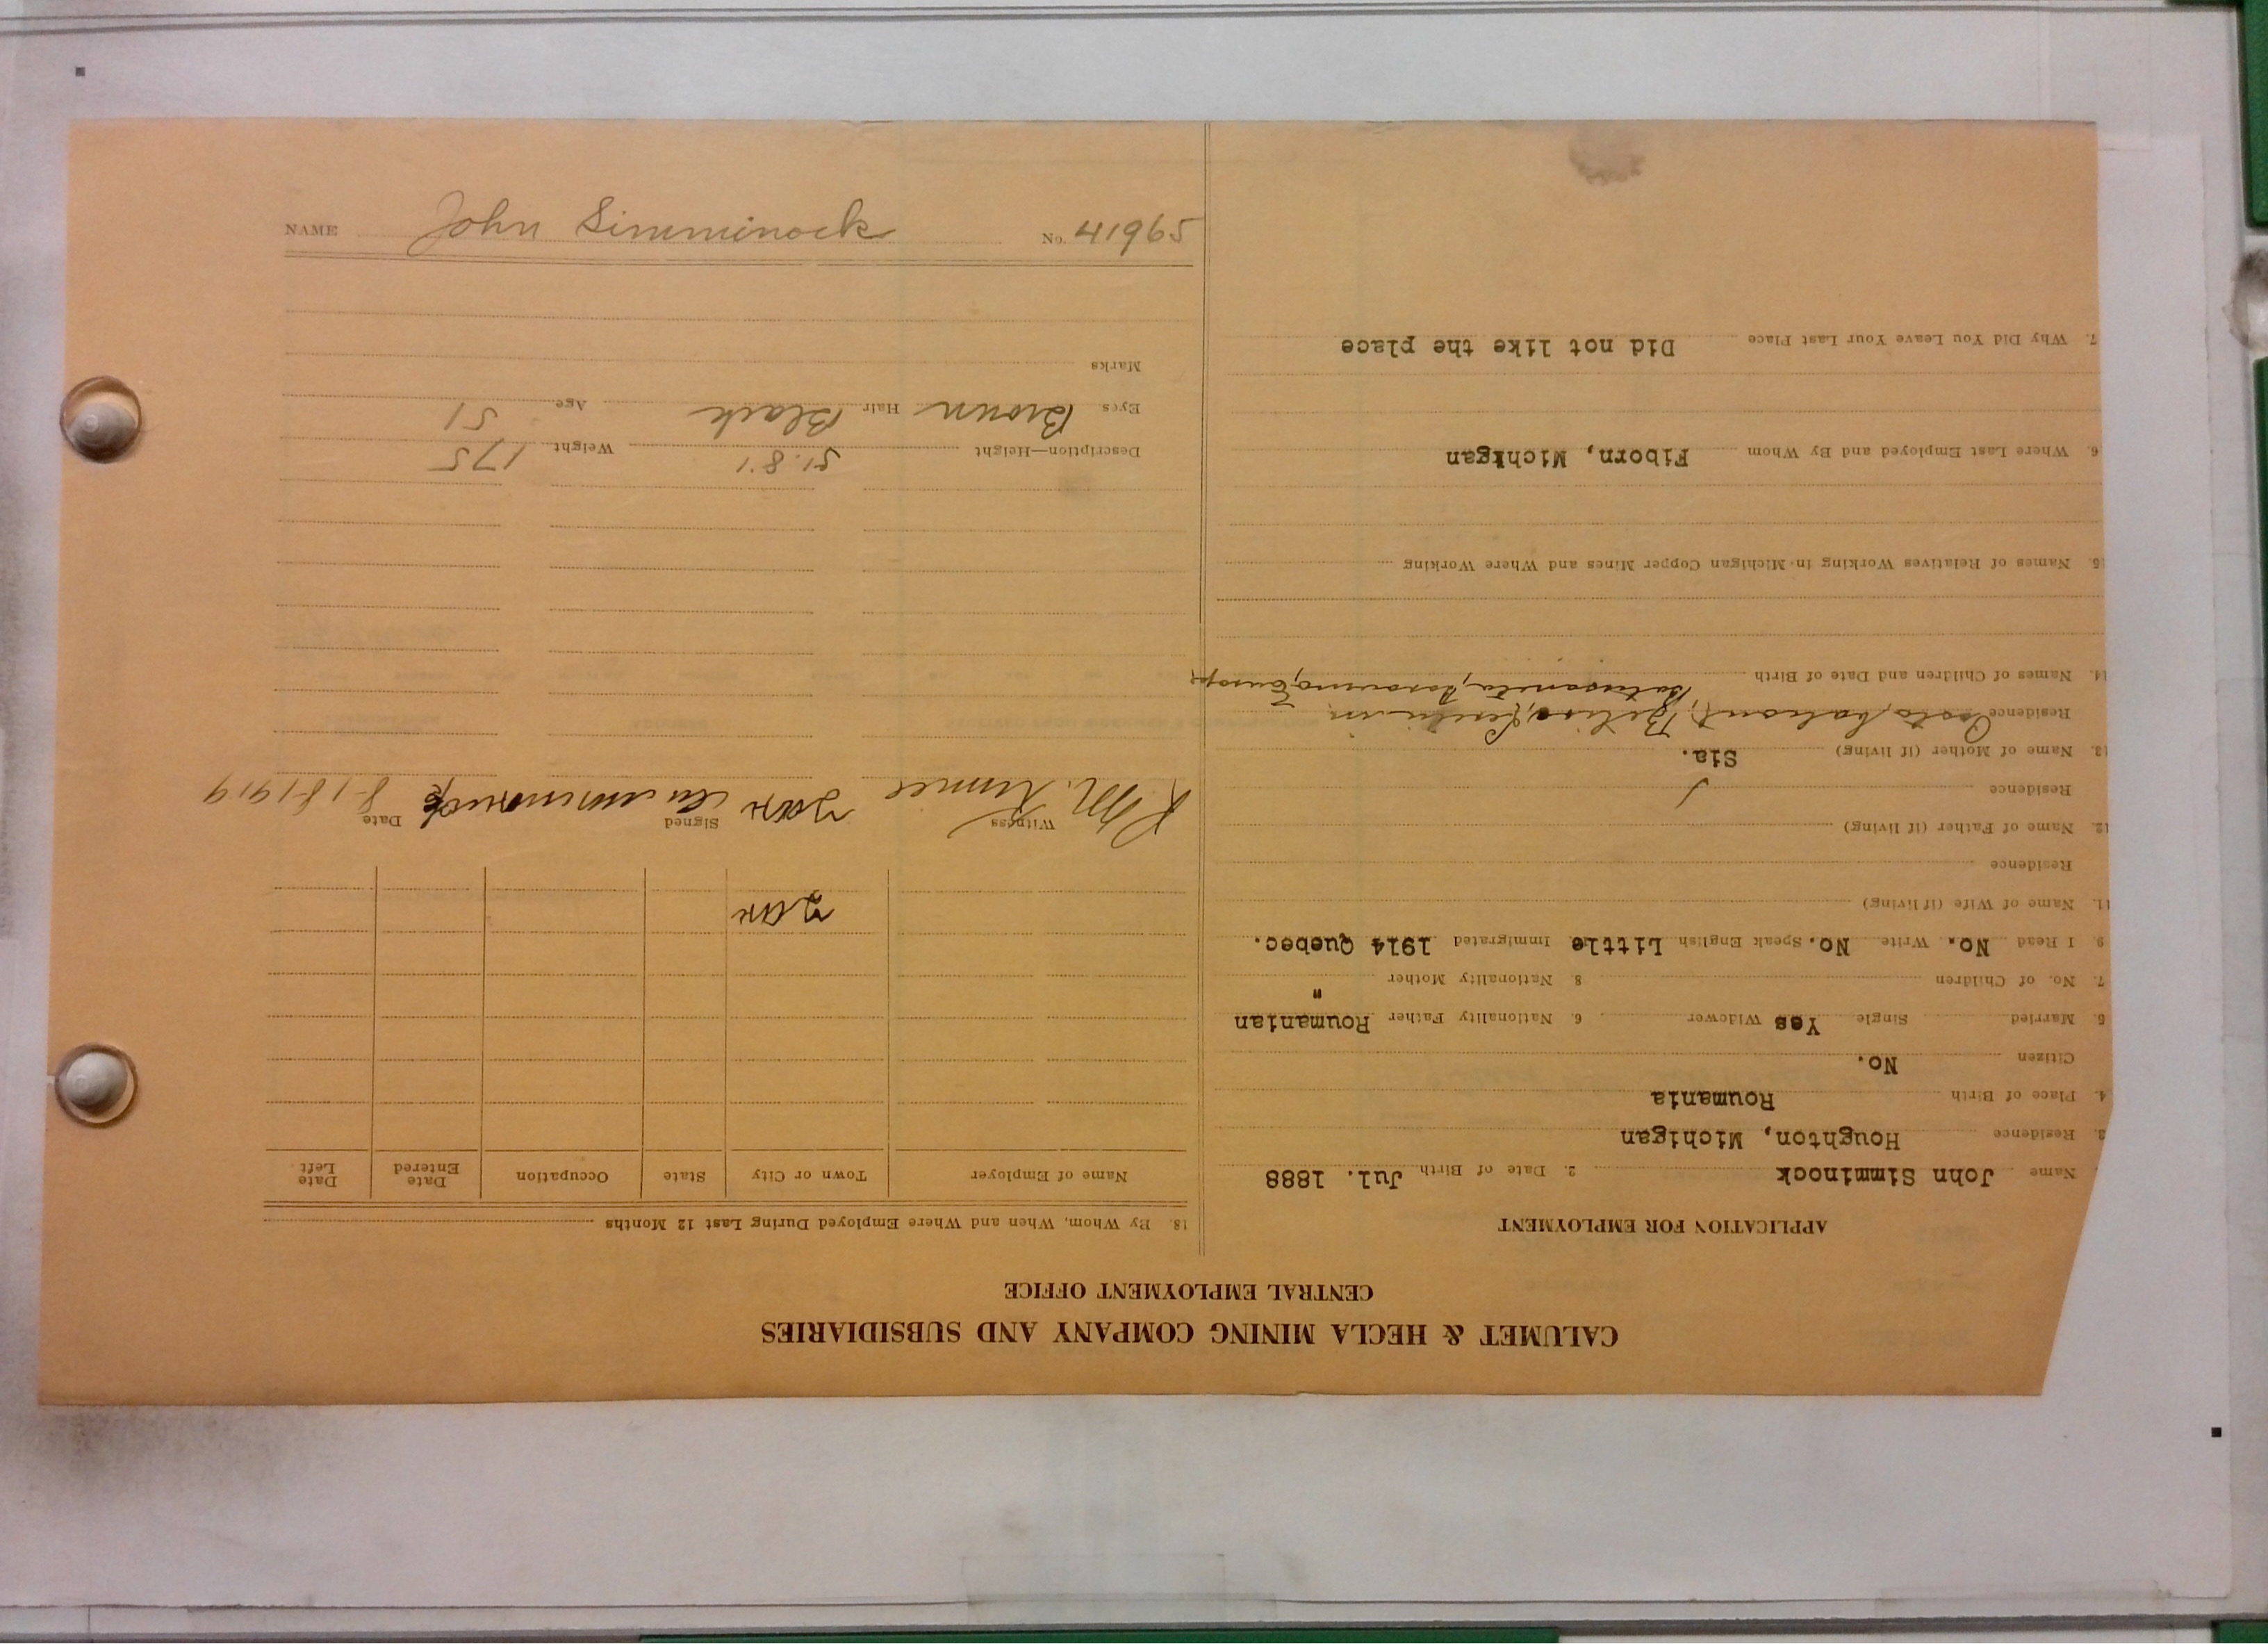 CALUMET & HECLA MINING COMPANY AND SUBSIDIARIES
CENTRAL EMPLOYMENT OFFICE
APPLICATION FOR EMPLOYMENT
Name John Simminock 2. Date of Birth Jul. 1888
3. Residence Houghton, Michigan
4. Place of Birth Roumania
Citizen No.
5. Married Single Yes Widower 6. Nationality Father Roumanian
7. No. of Children 8 Nationality Mother "
9. I Read No. Write No. Speak English Little Immigrated 1914 Quebec.
11. Name of Wife (if living)
Residence
12. Name of Father (if living)
Residence
13. Name of Mother (if living) Sia.
Residence
14. Names of Children and Date of Birth
15. Names of Relatives Working in Michigan Copper Mines and Where Working
6. Where Last Employed and By Whom Fiborn, Michigan
7. Why Did You Leave Your Last Place Did not like the place
18. By Whom, When and Where Employed During Last 12 Months
Name of Employer Town or City State Occupation Date Entered Date Left
Witness Signed Date 8-18-1919
Description—Height 5'.8' Weight 175
Eyes Brown Hair Black Age 51
Marks
NAME John Simminock No. 41965